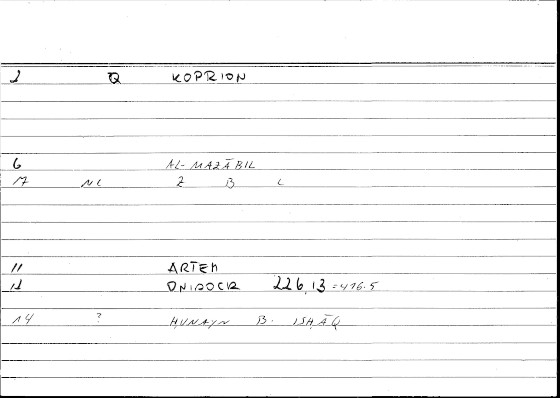 2 Q KOPRION
6 AL-MAZĀBIL
17 NL Z B L
11 ARTEM
12 226,13 = 476.5
14 ? ḤUNAYN B. ISḤĀQ